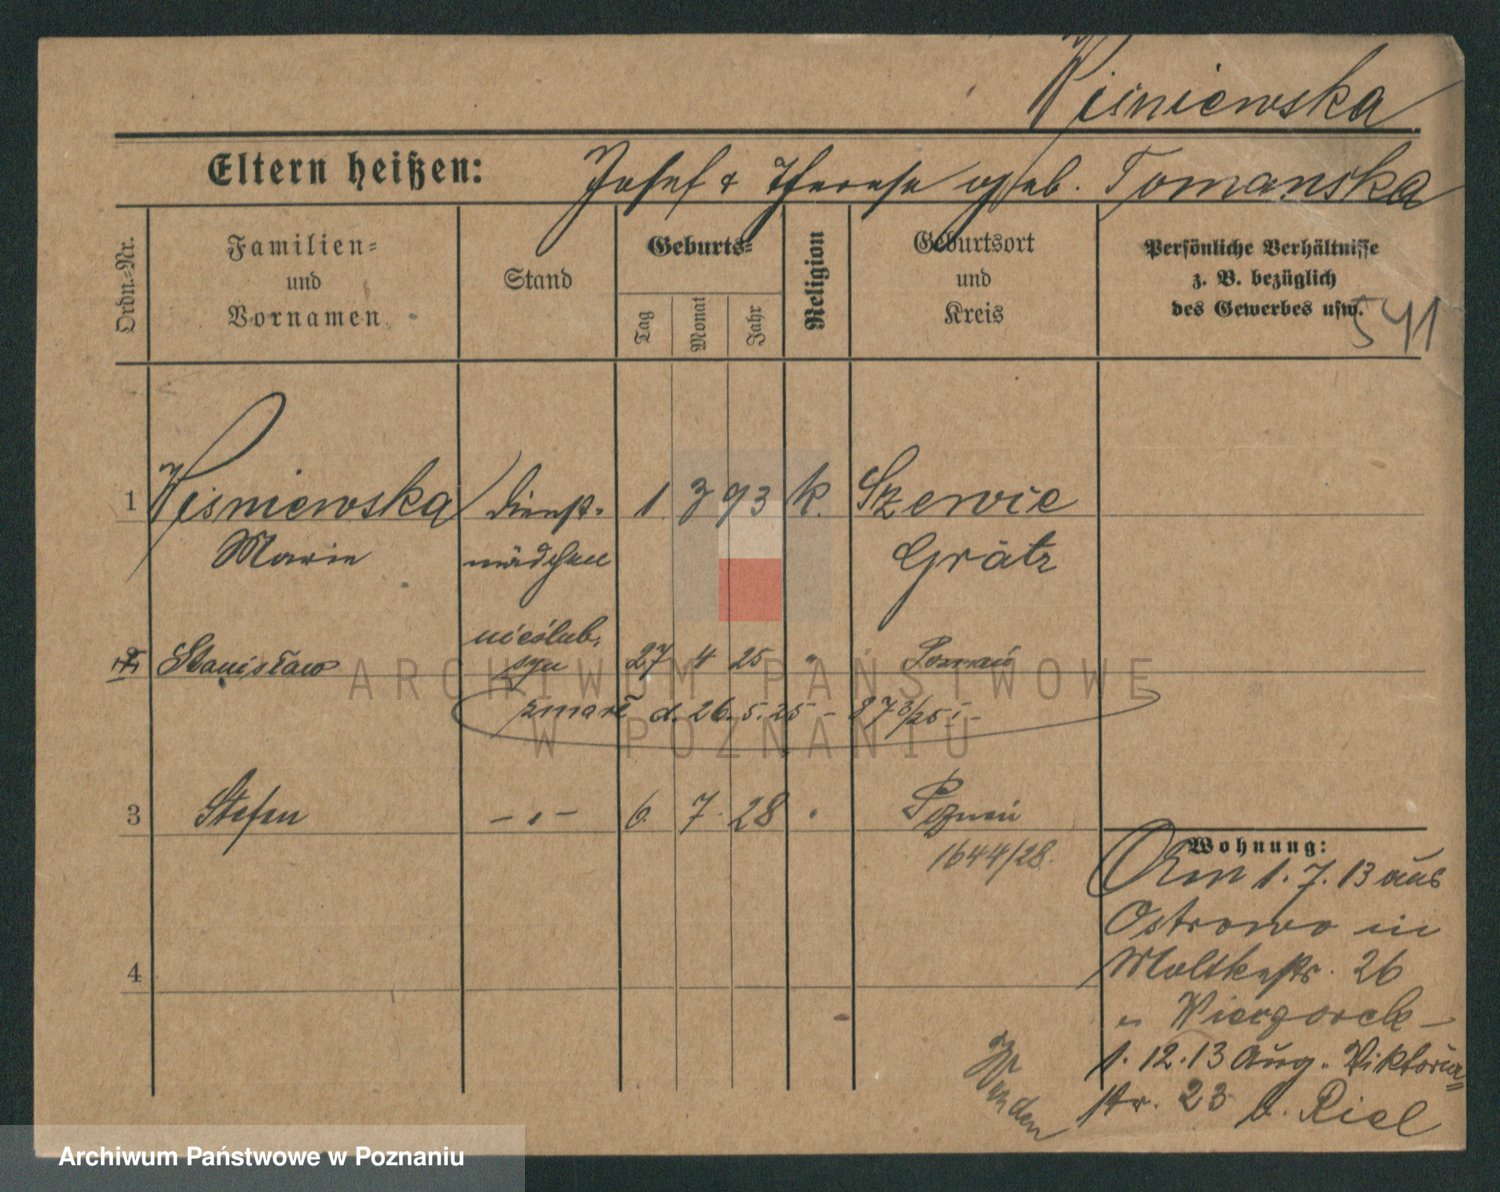 Wisniewska
Eltern heißen: Josef & Therese geb. Tomanska
Ordn.-Nr.
Familien-
und
Vornamen
Stand
Geburts-
Tag
Monat
Jahr
Religion
Geburtsort
und
Kreis
Persönliche Verhältnisse
z. B. bezüglich
des Gewerbes usw.
541
1 Wisniewska Dienst- 1 3 93 k. Szewce
Marie mädchen Grätz
nieślub.
2 Stanisław syn 27 4 25 " Poznań
zmarł d. 26.5.25 - 873/25 I -
3 Stefan - " - 6. 7. 28 " Poznań
1644/28.
Wohnung:
1.7.13 aus
Ostrowo in
Moltkestr. 26
4
1.12.13 Aug. Viktoria=
str. 23 b. Riel
ARCHIWUM PAŃSTWOWE
W POZNANIU
Archiwum Państwowe w Poznaniu